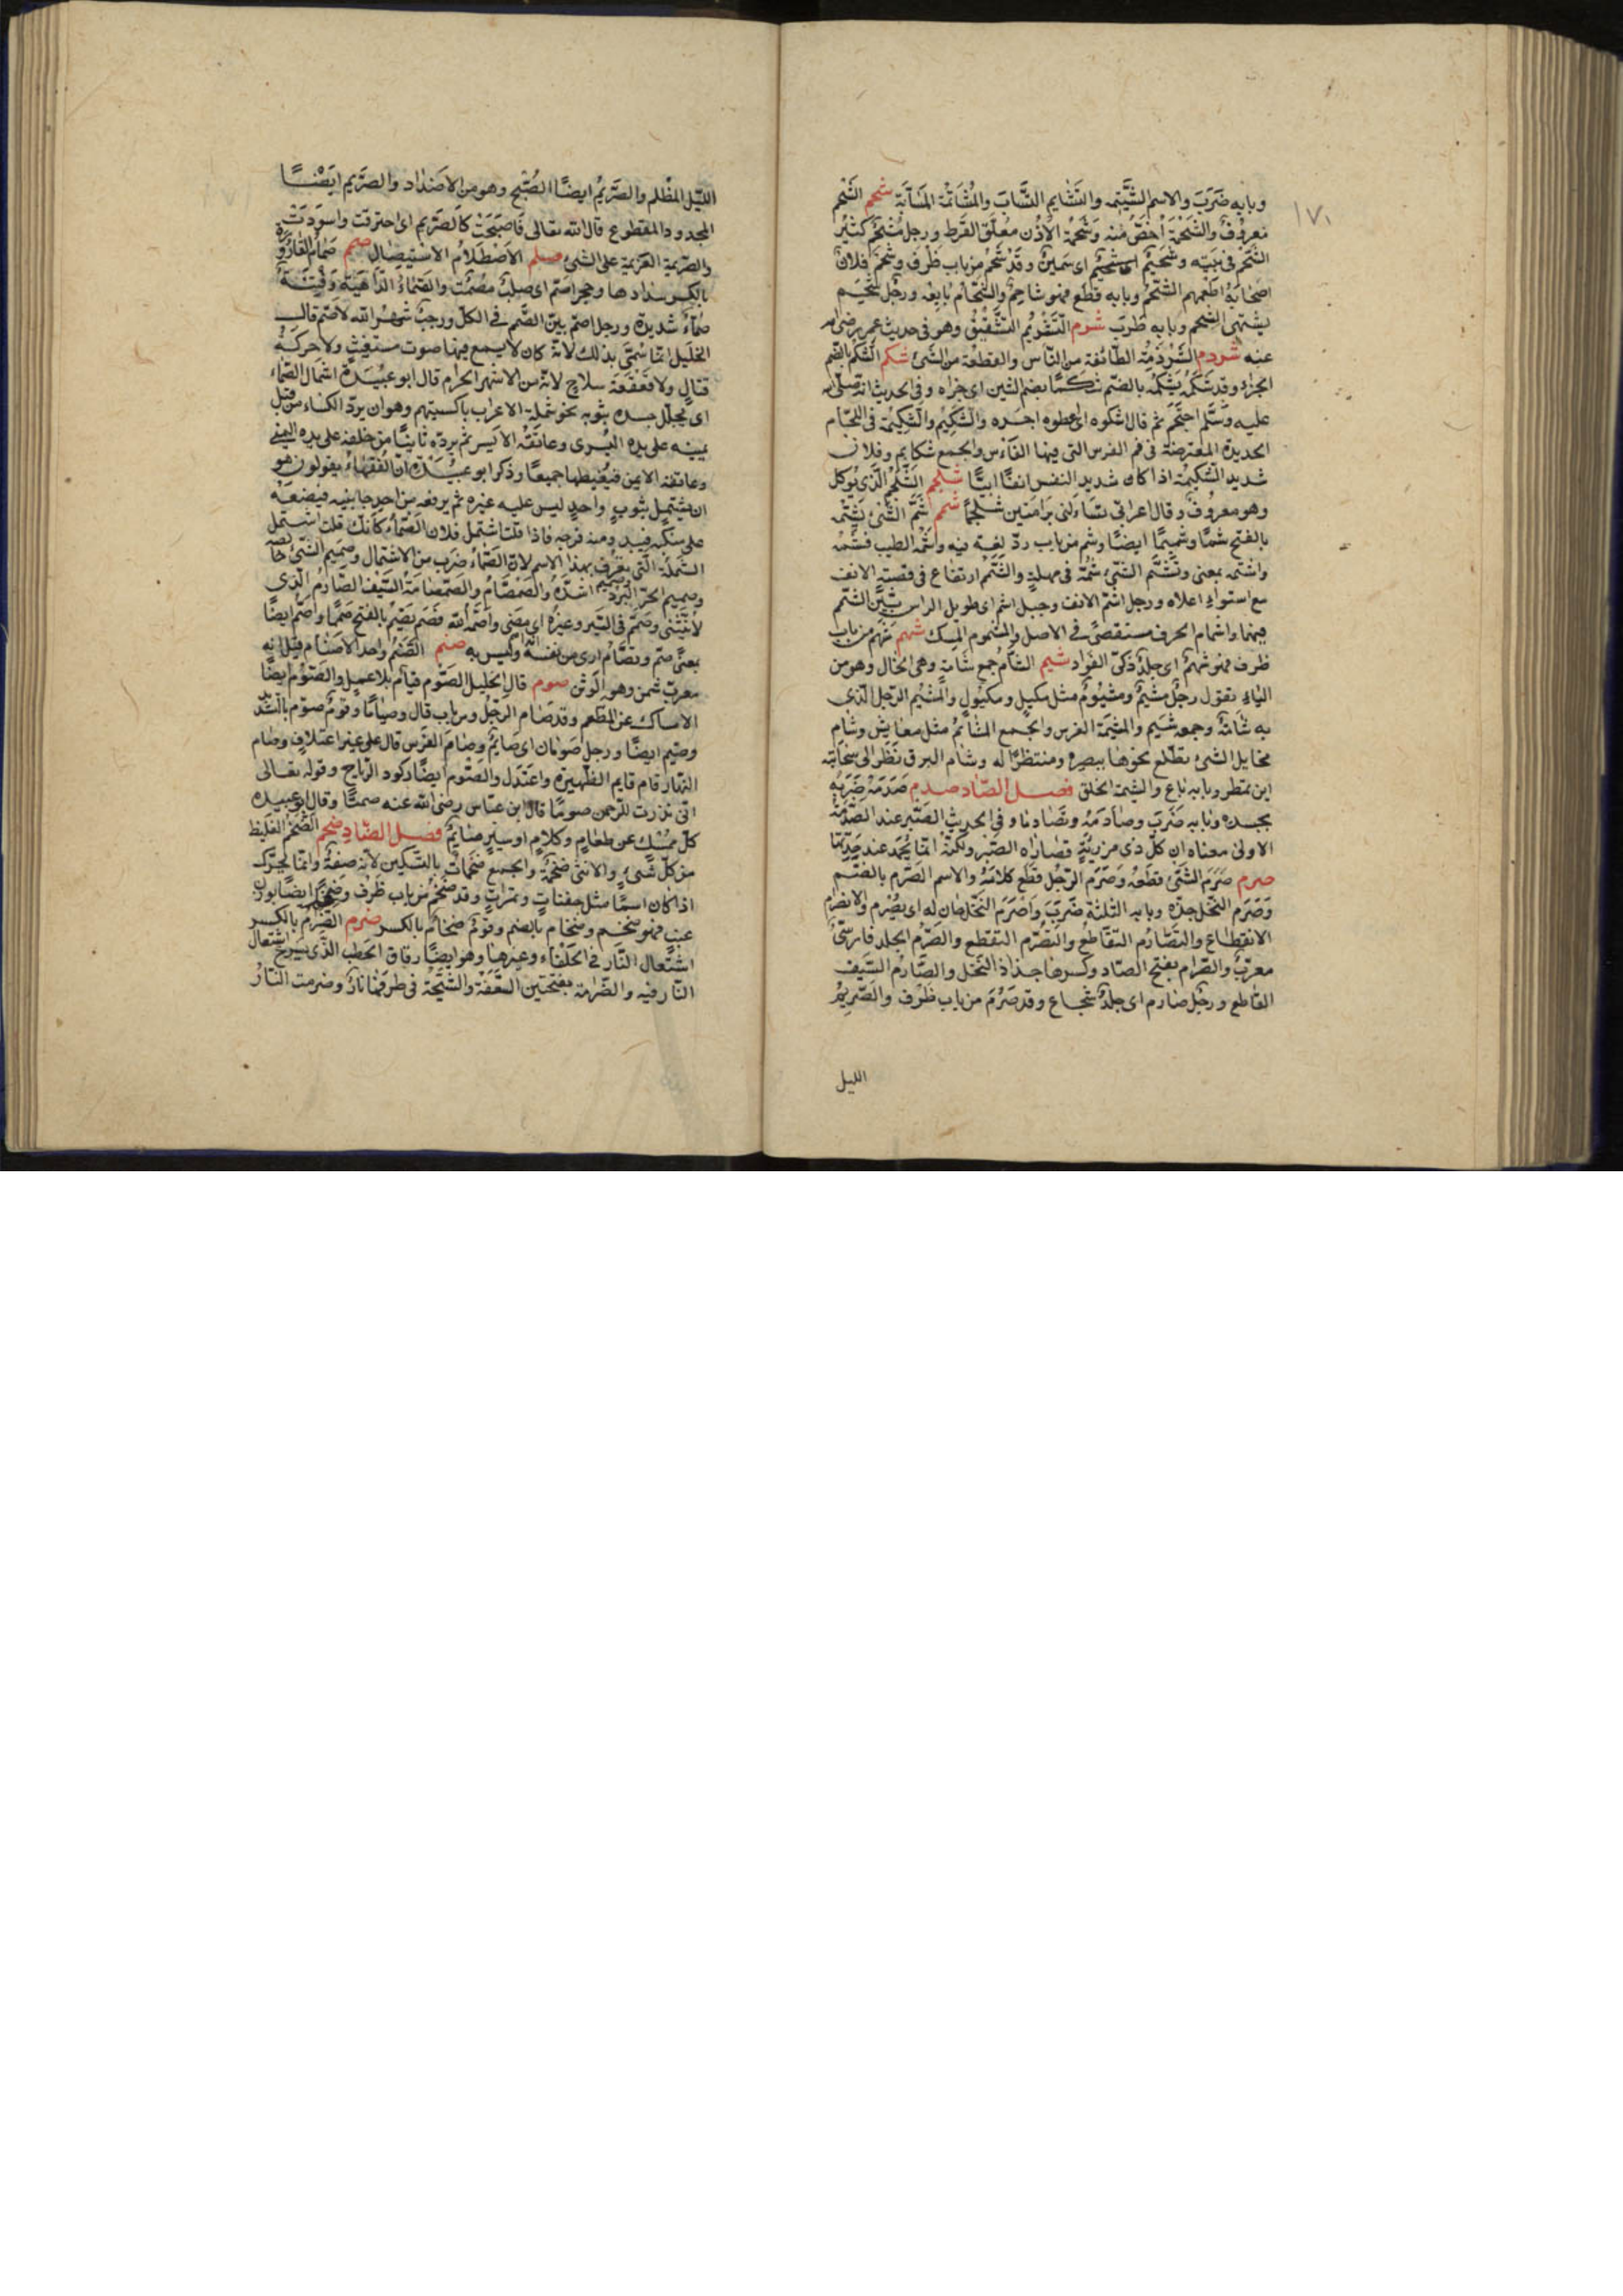 ١٧١
وبابه ضَرَبَ والاسم الشَّتيمه والتَّشاتم التَّسابّ والمُشَاتَمَة المُسَابَّة شحم الشَّحم
معروفٌ والشَحْمَة اخصّ منه وشَحْمَة الاُذُن مُعَلَّق القُرط ورجل مُشْحِم كثيرُ
الشَّحم فى بيته وشَحِيمٌ اى سَمينٌ وقد شَحُم من باب ظَرُف وشَحَمَ فلانٌ
اصحابَهُ اطعمهم الشَّحْمَ وبابه قطع فهو شاحِمٌ والشَّحّام بايعه ورجُل شَحِم
يشتهى الشحم وبابه طَرِبَ شرم التَّشْريم التَّشْقيق وهو فى حديث عمر رضى الله
عنه شرذم الشِرْذِمَة الطّائفة من النّاس والقطعة من الشئ شكم الشُّكم بالضّم
الجزاء وقد شَكَمَهُ يَشْكُمُه بالضّم شكمًا بضم الشين اى جزاه وفى الحديث انه صلّى الله
عليه وسَلَّم احتجَمَ ثم قال اشكموه اى اعطوه اجره والشَّكِيم والشَّكِيمَة فى اللّجام
الحديدة المعترضة فى فم الفرس التى فيها الفأس والجمع شكايم وفلان
شديد الشَّكِيمة اذا كان شديد النفس انفًا ابيًّا شلجم الشَّلْجَمُ الّذى يُؤكل
وهو معروف وقال اعرابى تَسْأَلنى برَامَتين شَلْجَمًا شمم شَمَّ الشَّئ يَشَمّه
بالفتح شمًّا وشميمًا ايضًا وشم من باب ردّ لغة فيه واشَمّه الطيب فشمّه
واشتمّه بمعنى وتَشَمَّم الشئ شمّه فى مهلة والشَّمَم ارتفاع فى قصبة الانف
مع استواء اعلاه ورجل اشمّ الانف وجبل اشم اى طويل الراس بَيِّن الشمم
فيهما واشمام الحرف مستقصًى فى الاصل والمشموم المِسك شهم شَهُم من باب
ظرف فهو شهم اى جلدٌ ذَكىّ الفؤاد شيم الشّام جمع شَامةٍ وهى الخال وهو من
الياءِ تقول رجلٌ مَشيم ومشيوم مثل مكيل ومكيول والمشيم الرّجل الّذى
به شامة وجمعه شيم والمشيمة الغرس والجمع المشائم مثل معايش وشام
مخايل الشئ تطلّع نحوها ببصره منتظرًا له وشام البرق نَظَر الى سَحابته
اين تمطر وبابه باع والشيمة الخلق فصل الصّاد صدم صَدَمَهُ ضَرَبَهُ
بجسده وبابه ضَرَبَ وصادَمَهُ وتَصَادما وفى الحديث الصَّبر عند الصَّدمة
الاولى معناه ان كلّ ذى مرزئةٍ قصاراه الصَّبر ولكنّه انّما يُحمَد عند حِدّتها
صرم صَرَمَ الشئ قطعه وصَرَم الرّجل قطع كلامَهُ والاسم الصُّرم بالضّم
وصَرَم النّخل جذّه وبابه الثلاثة ضَرَبَ واَصْرَم النّخل حان له اى يُصْرم والانصرام
الانقطاع والتَصَارُم التقاطُع والتَّصَرُّم التقطّع والصَّرْم الجلد فارسىٌ
معرّبٌ والصرام بفتح الصّاد وكسرها جذاذ النّخل والصّارم السّيف
القاطع ورجُل صارم اى جلدٌ شجاع وقد صَرُمَ من باب ظرُف والصّريم
الليل
الليّل المظلم والصَّرِيمُ ايضًا الصُّبح وهو من الاَضداد والصرّيم ايضًا
المجدود المقطوع قال الله تعالى فَاَصْبَحَتْ كَالصَّرِيم اى احترقت واسوَدَّتْ
والصرّيمة العَزيمة على الشئ صلم الاَصْطِلَامُ الاسْتيصال صمم صِمامُ القَارُورَة
بالكسر سدادها وحجر اصمّ اى صلبٌ مصمتٌ والصَّمّاءُ الدّاهية وفتنة
صمّاءُ شديدة ورجل اصمّ بيّن الصَّمم فى الكلّ ورجبٌ شهر الله الاصَمّ قال
الخليل انّما سُمِّىَ بذلك لانّهُ كان لا يسمع فيها صوت مستغيثٍ ولا حركة
قتالٍ ولا قعقعة سلاحٍ لانّه من الاشهر الحرام قال ابو عُبَيْدة اشتمال الصَّمّاء
اى تجلّل جسده بثوبه نحو شملة الاعراب باكسيتهم وهو ان يردّ الكساء من قبل
يمينه على يده اليُسرى وعاتقه الايسر ثم يردّه ثانيًا من خلفه على يده اليمنى
وعاتقه الايمن فيُغَطيهما جميعًا وذكر ابو عبيدة انّ الفقهاءَ يقولون هو
ان يشتمل بثوبٍ واحدٍ ليس عليه غيره ثم يرفعه من احد جانبيه فيضعَهُ
على منكبه فيبدو منه فرجه فاذا قلت اشتمل فلان الصَّمّاءَ كأنّك قلت اشتمل
الشملة التى تعرف بهذا الاسم لانّ الصَّمّاءَ ضربٌ من الاشتمال وصميم الشئ خالصه
وصميم الحرّ وصميم البرد اشدّهُ والصَّمْصَام والصَّمصامة السَّيْف الصّارمُ الّذى
لا ينثنى وصَمَّم فى السّير وغيرهِ اى مضى واصَمّهُ الله فصَمّ يَصَمُّ بالفتح صَمَمًا واصَمّ ايضًا
بمعنى صمّ وتصَامّ ارى من نفسه انّه اصم وليس به صنم الصَّنَم واحد الاصنام قيل انه
معرب شمن وهو الوَثن صوم قال الخليل الصّوم قيام بلا عمل والصّوم ايضًا
الامساك عن المطعم وقد صام الرّجُل من باب قال وصيامًا وقوم صوّم بالتشديد
وصيّم ايضًا ورجل صومان اى صائم وصام الفَرس قام على غير اعتلاف وصام
النّهار قام قايم الظّهيرة واعتدَل والصّوم ايضًا ركود الرّياح وقوله تعالى
انّى نذرت للرّحمن صومًا قال ابن عبّاس رضى الله عنه صمتًا وقال ابو عبيدة
كلّ مُمْسِك عن طعامٍ وكلامٍ او سيرٍ صايمٌ فصل الضّادِ ضخم الضَّخْمُ الغليظ
من كلّ شئ والانثى ضخمة والجمع ضَخْمات بالتّسكين لانّه صفةٌ وانّما يُحرّك
اذا كان اسمًا مثل جفنات وتمرات وقد ضَخُم من باب ظَرُف وضِخَمًا ايضًا بوزن
عِنَب فهو ضخم وضُخام بالضم وقومٌ ضِخام بالكسر ضرم الضِّرام بالكسر
اشتعال النّار فى الحَلْفاءِ وغيرها وهو ايضًا دقاق الحطب الّذى يسرع اشتعال
النّار فيه والضَّرَمة بفتحتين السَّعَفَة والشّيحَة فى طرفها نارٌ وضرمت النّارُ